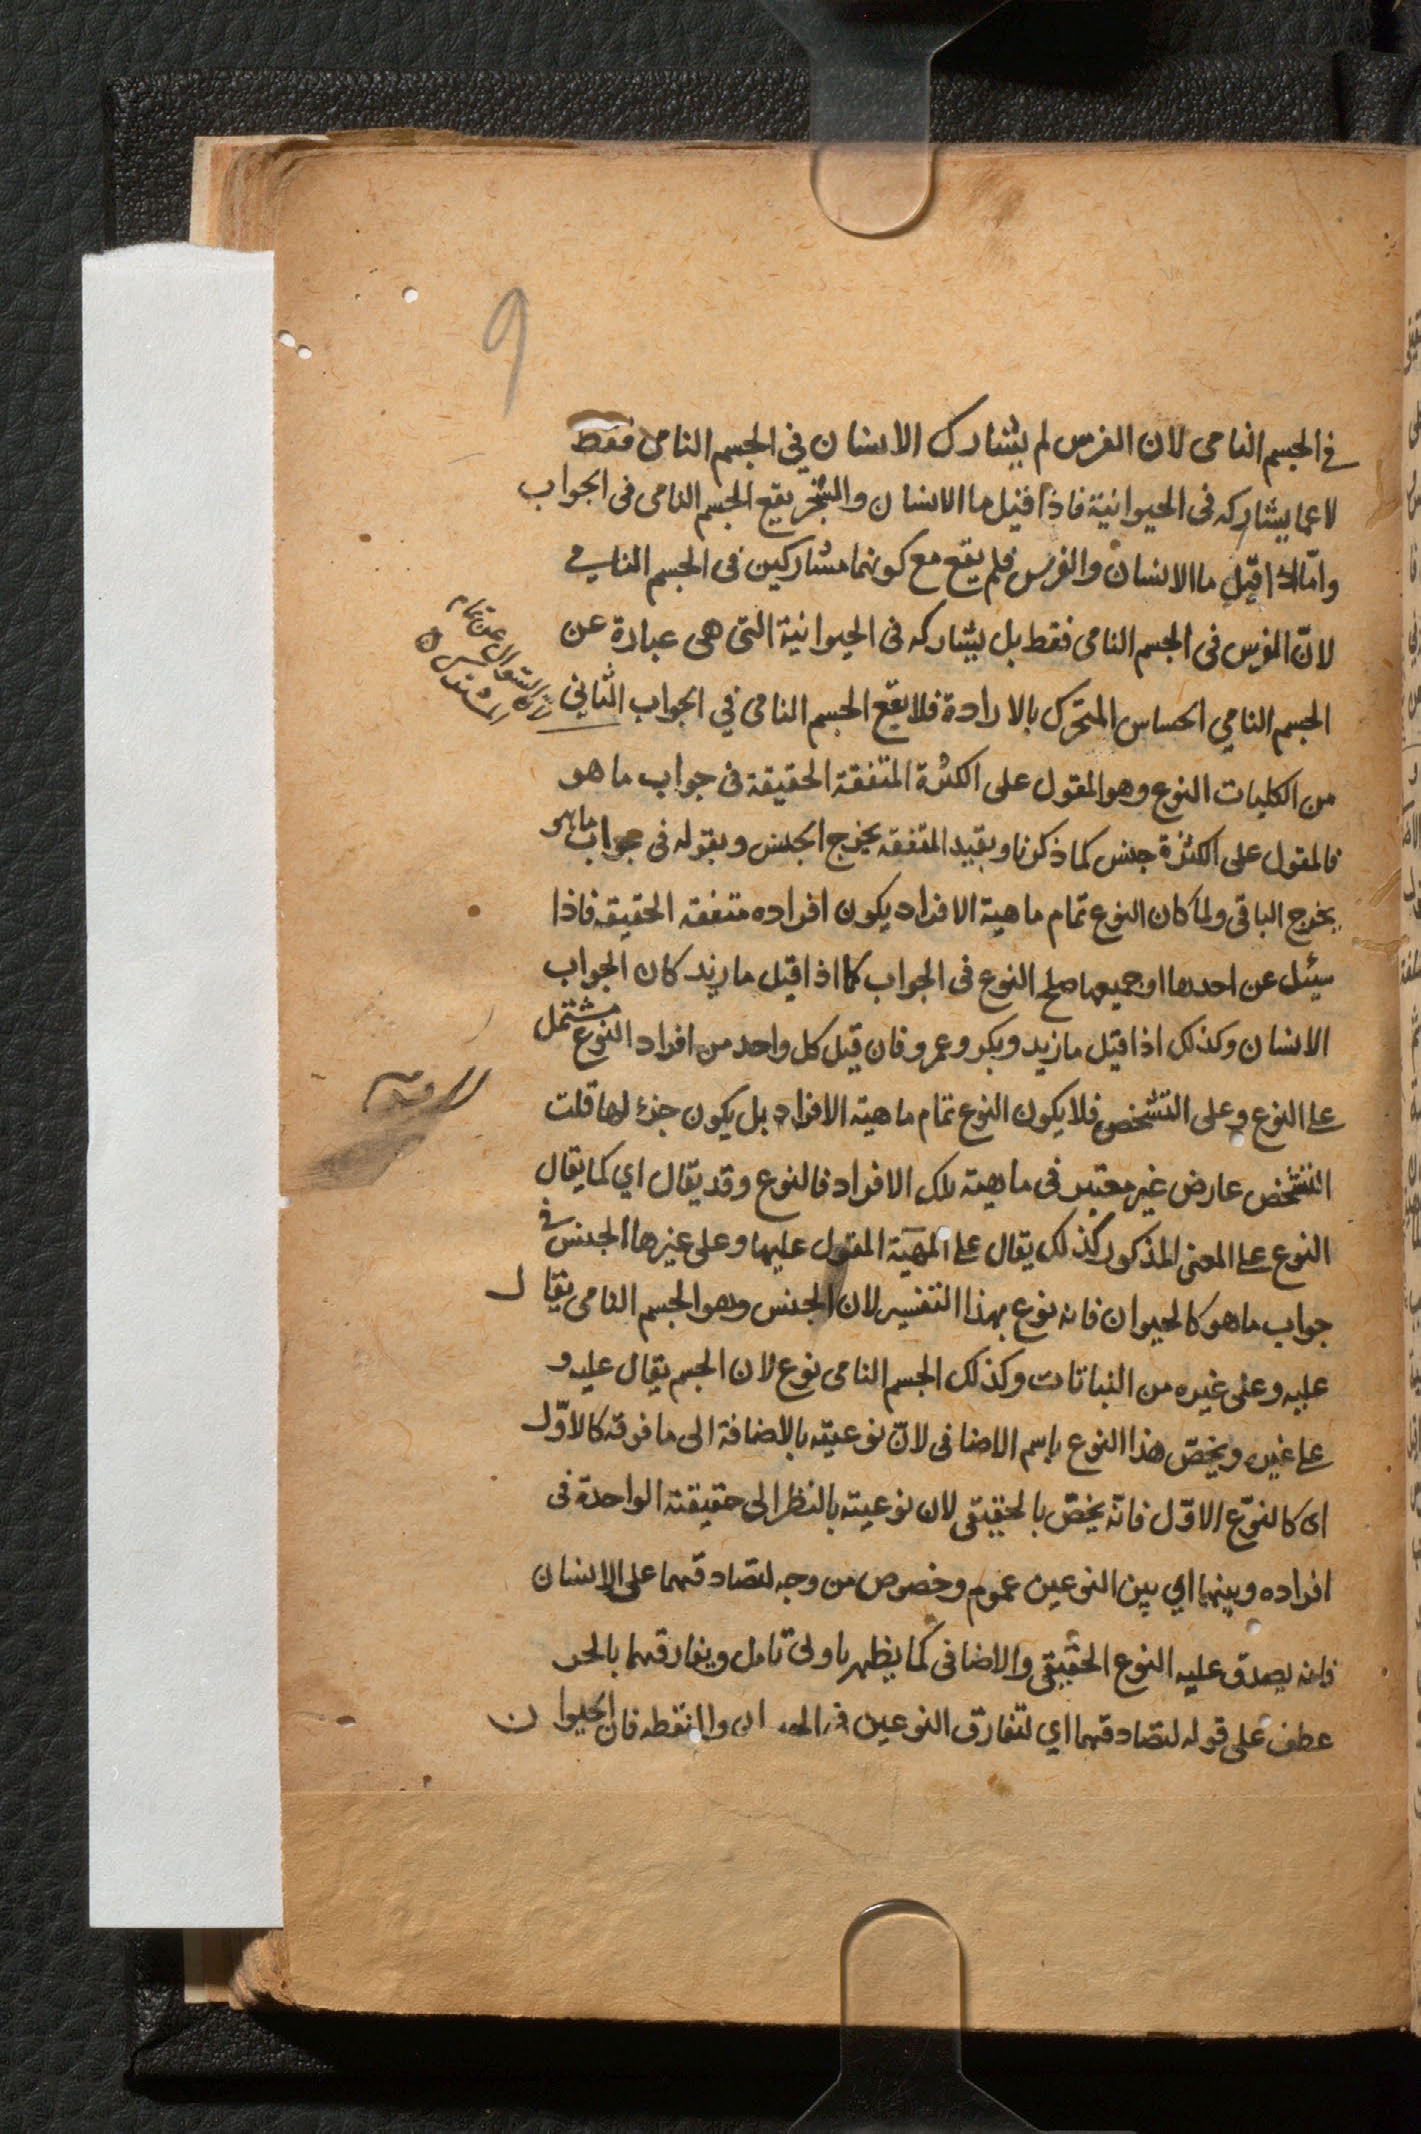 9
في الجسم النامى لان الفرس لم يشارك الانسان في الجسم النامى فقط
لاعما يشاركه فى الحيوانية فاذا قيل ما الانسان والشجر يقع الجسم النامى فى الجواب
وامّا اذا قيل ما الانسان والفرس فلم يقع مع كونهما مشاركين فى الجسم النامي
لانّ الفرس فى الجسم النامى فقط بل يشاركه فى الحيوانية التى هى عبارة عن
الجسم النامي الحساس المتحرك بالارادة فلا يقع الجسم النامى في الجواب الثاني
لان السؤال عن تمام
المشترك
من الكليات النوع وهو المقول على الكثرة المتفقة الحقيقة فى جواب ما هو
فالمقول على الكثرة جنس كما ذكرنا وبقيد المتفقه يخرج الجنس وبقوله فى جواب ما هو
يخرج الباقى ولما كان النوع تمام ماهية الافراد يكون افراده متفقه الحقيقه فاذا
سئل عن احدها او جميعها صلح النوع فى الجواب كما اذا قيل ما زيد كان الجواب
الانسان وكذلك اذا قيل ما زيد وبكر وعمرو فان قيل كل واحد من افراد النوع مشتمل
على النوع وعلى التشخص فلا يكون النوع تمام ماهية الافراد بل يكون جزء لها قلت
التشخص عارض غير معتبر فى ماهية تلك الافراد فالنوع وقد يقال اي كما يقال
النوع على المعنى المذكور كذلك يقال على المهية المقول عليها وعلى غيرها الجنس في
جواب ما هو كالحيوان فانه نوع بهذا التفسير لان الجنس وهو الجسم النامى يقال
عليه وعلى غيره من النباتات وكذلك الجسم النامى نوع لان الجسم يقال عليه و
على غيره ويخصّ هذا النوع باسم الاضافى لانّ نوعيته بالاضافة الى ما فوقه كالاوّل
اى كالنوع الاوّل فانّه يخصّ بالحقيقى لان نوعيته بالنظر الى حقيقته الواحدة فى
افراده وبينهما اي بين النوعين عموم وخصوص من وجه لتصادقهما على الانسان
فانه يصدق عليه النوع الحقيقى والاضافى كما يظهر باولى تامل ويفارقهما بالحر
عطف على قوله لتصادقهما اي لتفارق النوعين فى ان والنقطه فان الحيوان